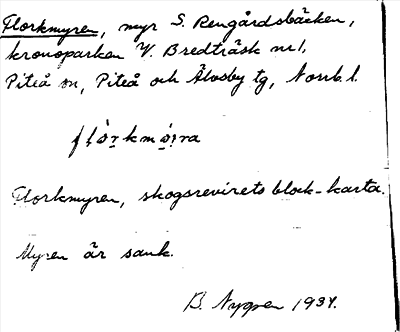 Florkmyren, myr S. Rengårdsbäcken,
kronoparken V. Bredträsk nr 1,
Piteå sn, Piteå och Älvsby tg, Norrb. l.
Florkmyren, skogsrevirets block-karta.
Myren är sank.
B. Nygren 1937.